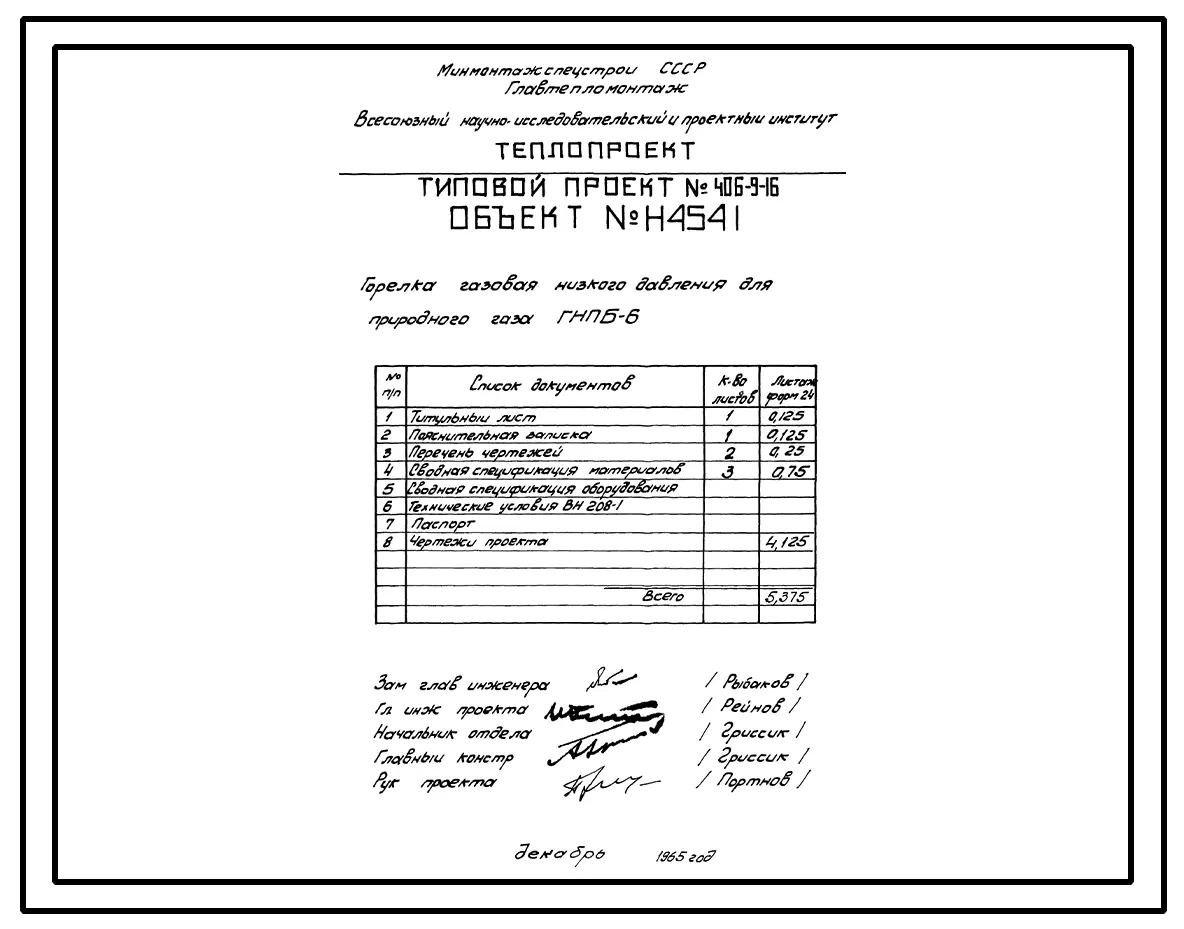 Минмонтажспецстрой СССР
Главтепломонтаж
Всесоюзный научно-исследовательский и проектный институт
ТЕПЛОПРОЕКТ
ТИПОВОЙ ПРОЕКТ № 406-9-16
ОБЪЕКТ № Н4541
Горелка газовая низкого давления для
природного газа ГНПБ-6
№ п/п Список документов К-во листов Листаж форм 24
1 Титульный лист 1 0,125
2 Пояснительная записка 1 0,125
3 Перечень чертежей 2 0,25
4 Сводная спецификация материалов 3 0,75
5 Сводная спецификация оборудования
6 Технические условия ВН 208-1
7 Паспорт
8 Чертежи проекта 4,125
Всего 5,375
Зам глав инженера / Рыбаков /
Гл инж проекта / Рейнов /
Начальник отдела / Гриссик /
Главный констр / Гриссик /
Рук проекта / Портнов /
декабрь 1965 год